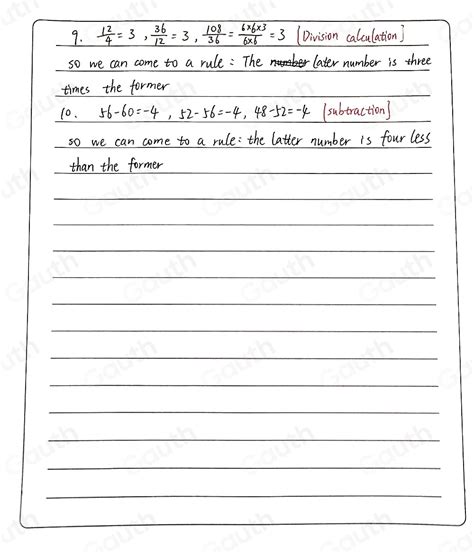 9. 12/4 = 3 , 36/12 = 3 , 108/36 = 6×6×3/6×6 = 3 [Division calculation]
so we can come to a rule : The number later number is three
times the former
10. 56-60=-4 , 52-56=-4, 48-52=-4 [subtraction]
so we can come to a rule: the latter number is four less
than the former
Gauth